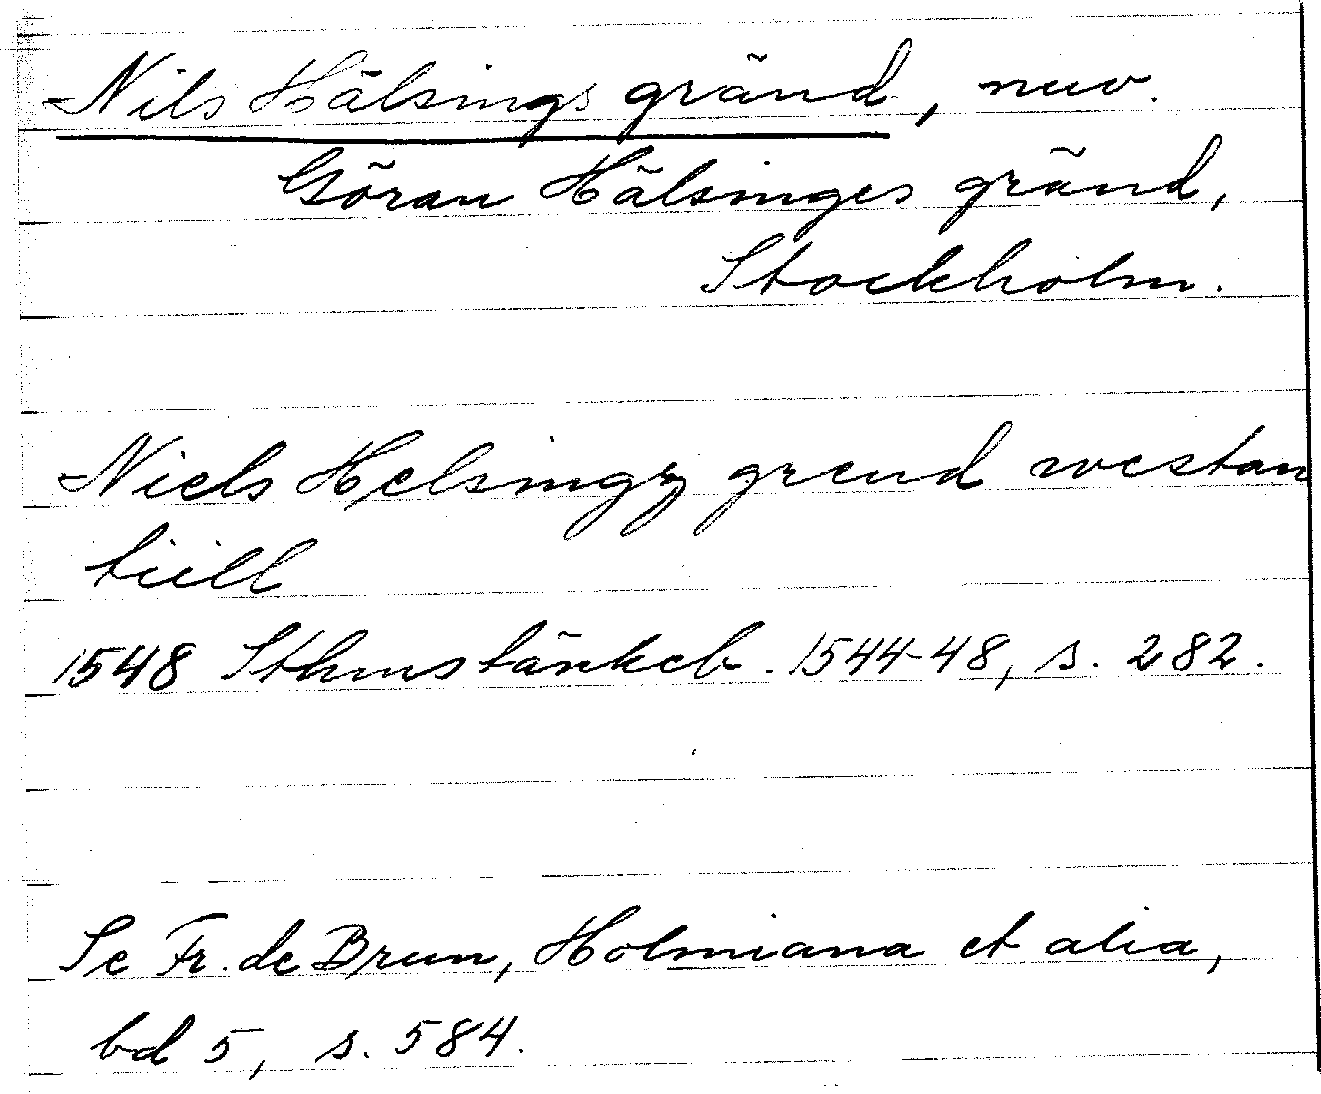 Nils Hälsings gränd, nuv.
Göran Hälsinges gränd,
Stockholm.
Niels Helsingz grend westan
tiill
1548 Sthmstänkeb. 1544-48, s. 282.
Se Fr. de Brun, Holmiana et alia,
bd 5, s. 584.